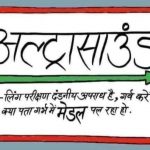 अल्ट्रासाउंड
-लिंग परीक्षण दंडनीय अपराध है, गर्व करें
क्या पता गर्भ में मेडल पल रहा हो.